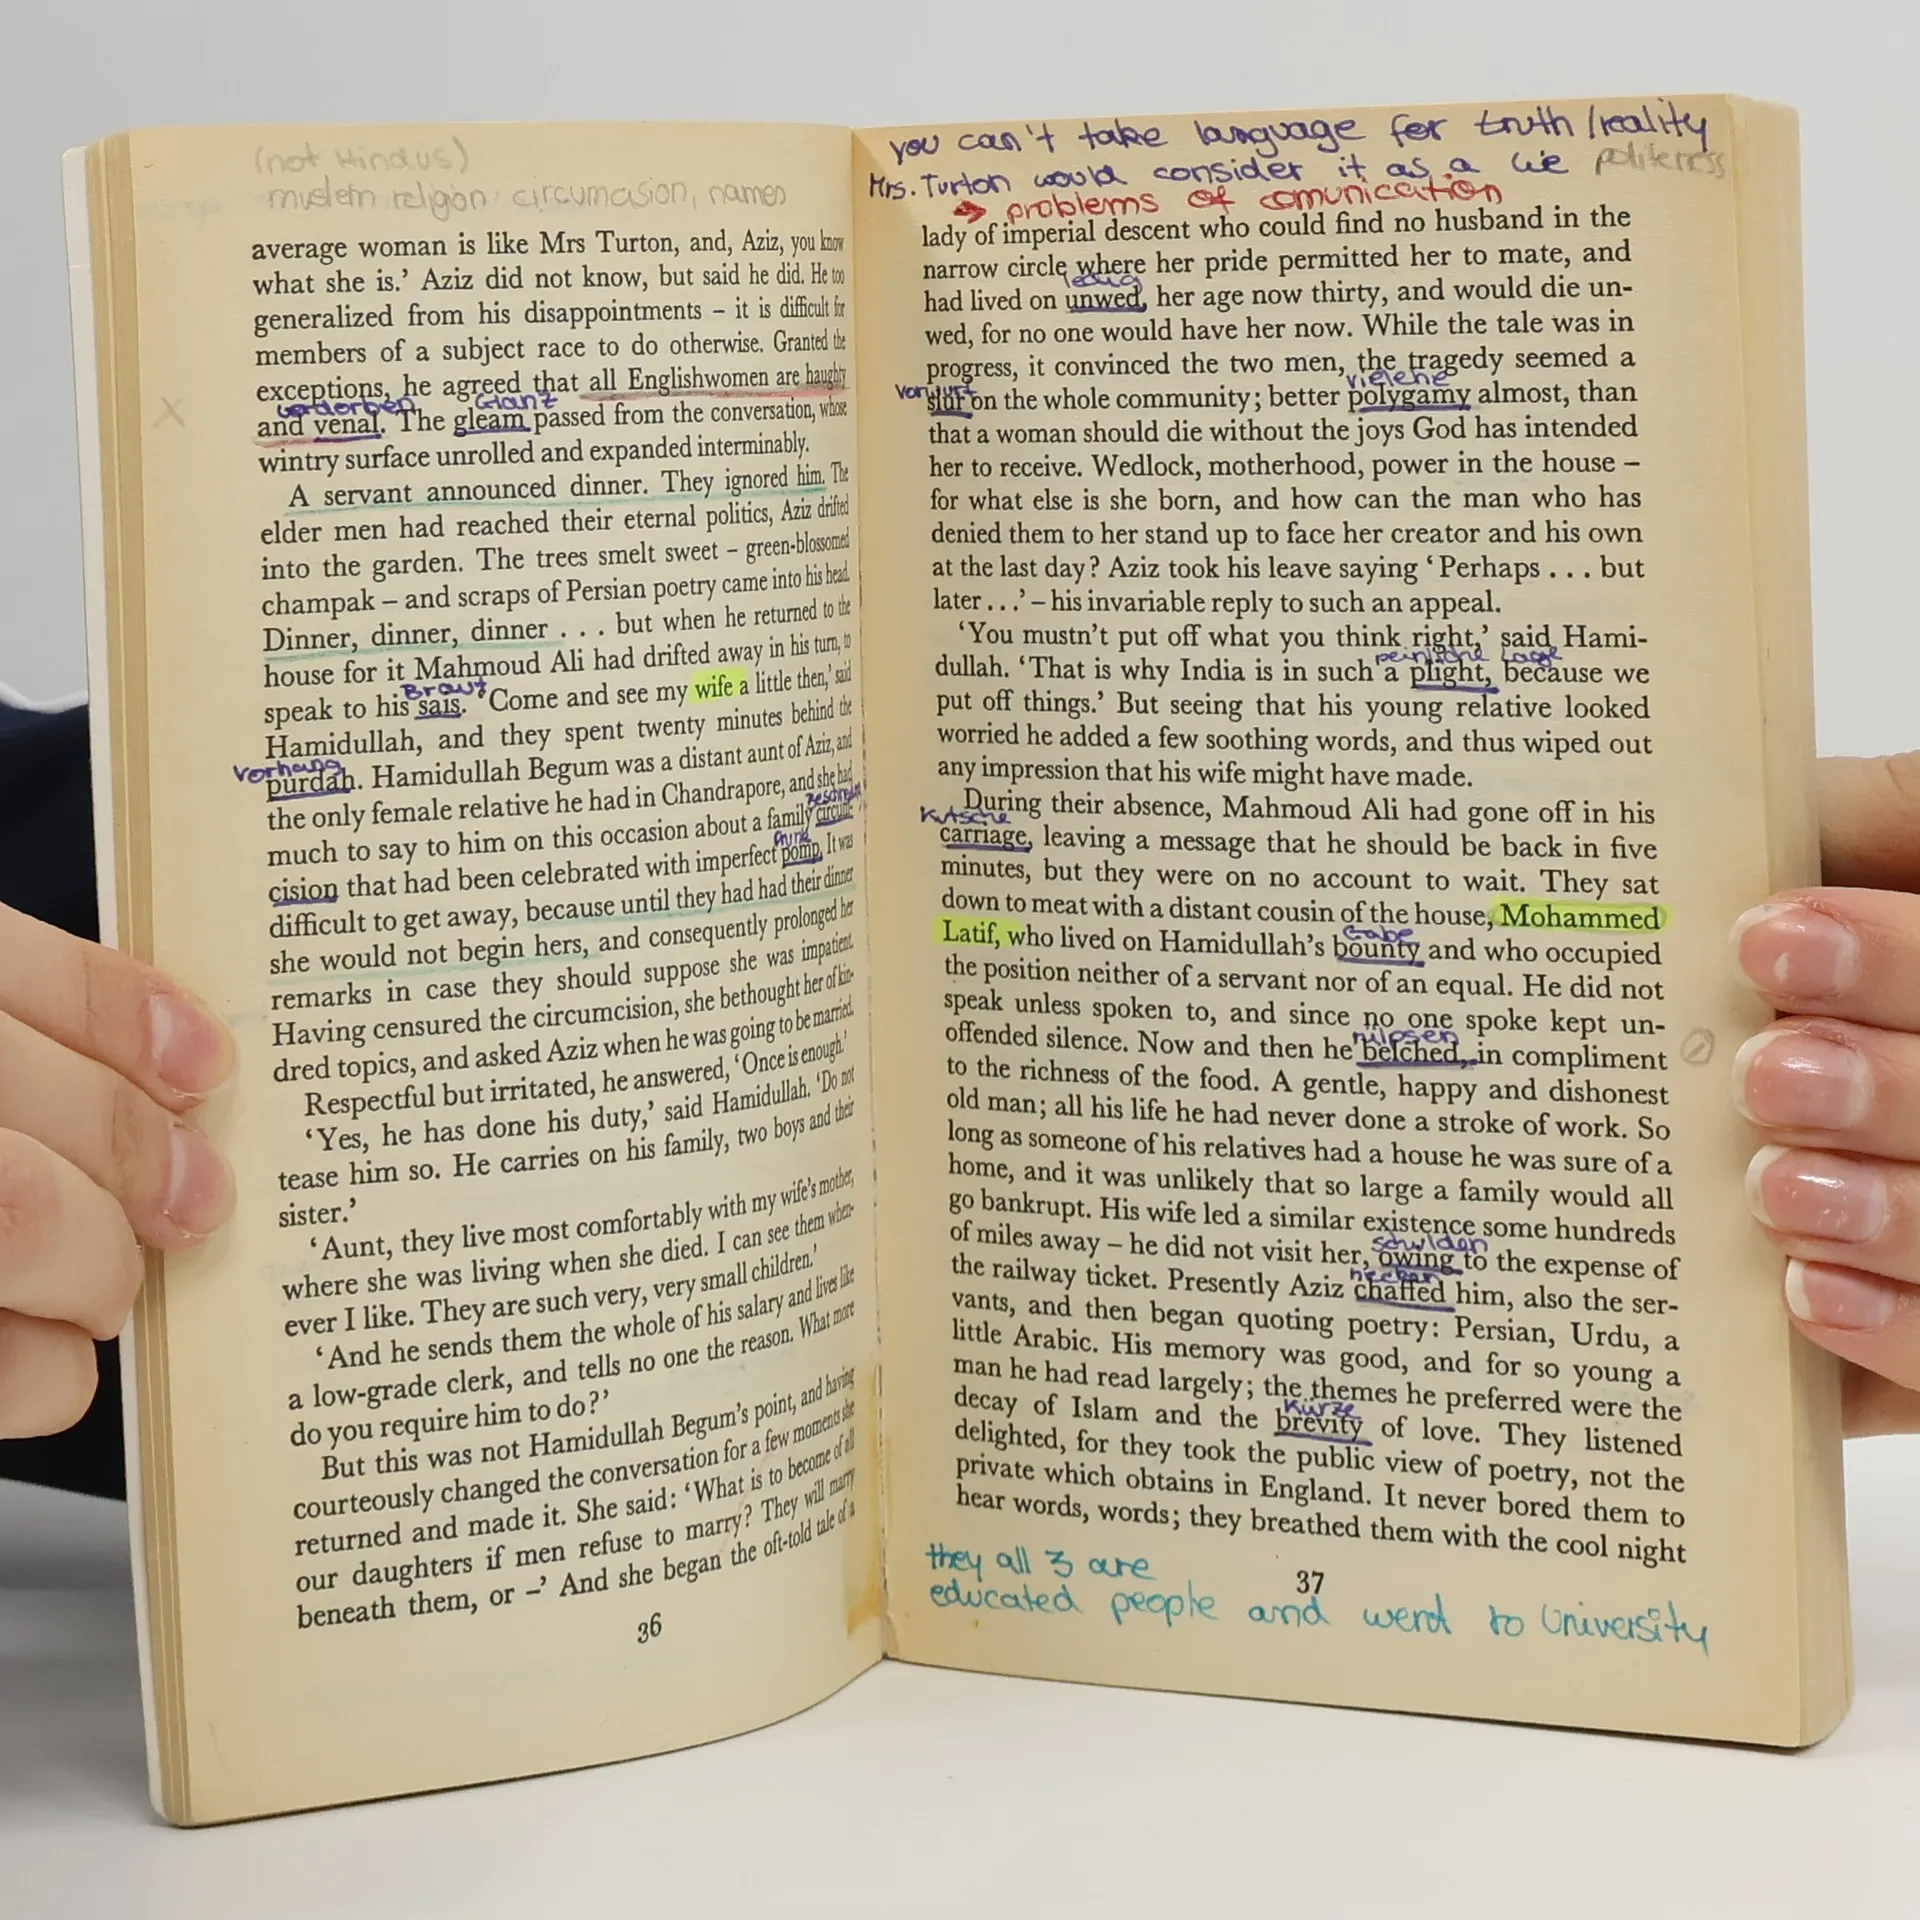 (not Hindus)
muslem religion: circumcision, names
average woman is like Mrs Turton, and, Aziz, you know
what she is.’ Aziz did not know, but said he did. He too
generalized from his disappointments – it is difficult for
members of a subject race to do otherwise. Granted the
exceptions, he agreed that all Englishwomen are haughty
verdorben Glanz
and venal. The gleam passed from the conversation, whose
wintry surface unrolled and expanded interminably.
A servant announced dinner. They ignored him. The
elder men had reached their eternal politics, Aziz drifted
into the garden. The trees smelt sweet – green-blossomed
champak – and scraps of Persian poetry came into his head.
Dinner, dinner, dinner . . . but when he returned to the
house for it Mahmoud Ali had drifted away in his turn, to
Braut
speak to his sais. ‘Come and see my wife a little then,’ said
Hamidullah, and they spent twenty minutes behind the
Vorhang
purdah. Hamidullah Begum was a distant aunt of Aziz, and
the only female relative he had in Chandrapore, and she had
much to say to him on this occasion about a family circum-
Prunk
cision that had been celebrated with imperfect pomp. It was
difficult to get away, because until they had had their dinner
she would not begin hers, and consequently prolonged her
remarks in case they should suppose she was impatient.
Having censured the circumcision, she bethought her of kin-
dred topics, and asked Aziz when he was going to be married.
Respectful but irritated, he answered, ‘Once is enough.’
‘Yes, he has done his duty,’ said Hamidullah. ‘Do not
tease him so. He carries on his family, two boys and their
sister.’
‘Aunt, they live most comfortably with my wife’s mother,
where she was living when she died. I can see them when-
ever I like. They are such very, very small children.’
‘And he sends them the whole of his salary and lives like
a low-grade clerk, and tells no one the reason. What more
do you require him to do?’
But this was not Hamidullah Begum’s point, and having
courteously changed the conversation for a few moments she
returned and made it. She said: ‘What is to become of all
our daughters if men refuse to marry? They will marry
beneath them, or –’ And she began the oft-told tale of a
36
you can't take language for truth/reality
Mrs. Turton would consider it as a lie politeness
→ problems of comunication
lady of imperial descent who could find no husband in the
narrow circle where her pride permitted her to mate, and
ledig
had lived on unwed, her age now thirty, and would die un-
wed, for no one would have her now. While the tale was in
progress, it convinced the two men, the tragedy seemed a
Vorwurf vielehe
slur on the whole community; better polygamy almost, than
that a woman should die without the joys God has intended
her to receive. Wedlock, motherhood, power in the house –
for what else is she born, and how can the man who has
denied them to her stand up to face her creator and his own
at the last day? Aziz took his leave saying ‘Perhaps . . . but
later . . .’ – his invariable reply to such an appeal.
‘You mustn’t put off what you think right,’ said Hami-
peinliche Lage
dullah. ‘That is why India is in such a plight, because we
put off things.’ But seeing that his young relative looked
worried he added a few soothing words, and thus wiped out
any impression that his wife might have made.
During their absence, Mahmoud Ali had gone off in his
Kutsche
carriage, leaving a message that he should be back in five
minutes, but they were on no account to wait. They sat
down to meat with a distant cousin of the house, Mohammed
Gabe
Latif, who lived on Hamidullah’s bounty and who occupied
the position neither of a servant nor of an equal. He did not
speak unless spoken to, and since no one spoke kept un-
rülpsen
offended silence. Now and then he belched, in compliment
to the richness of the food. A gentle, happy and dishonest
old man; all his life he had never done a stroke of work. So
long as someone of his relatives had a house he was sure of a
home, and it was unlikely that so large a family would all
go bankrupt. His wife led a similar existence some hundreds
schulden
of miles away – he did not visit her, owing to the expense of
necken
the railway ticket. Presently Aziz chaffed him, also the ser-
vants, and then began quoting poetry: Persian, Urdu, a
little Arabic. His memory was good, and for so young a
man he had read largely; the themes he preferred were the
Kürze
decay of Islam and the brevity of love. They listened
delighted, for they took the public view of poetry, not the
private which obtains in England. It never bored them to
hear words, words; they breathed them with the cool night
they all 3 are
37
educated people and went to University